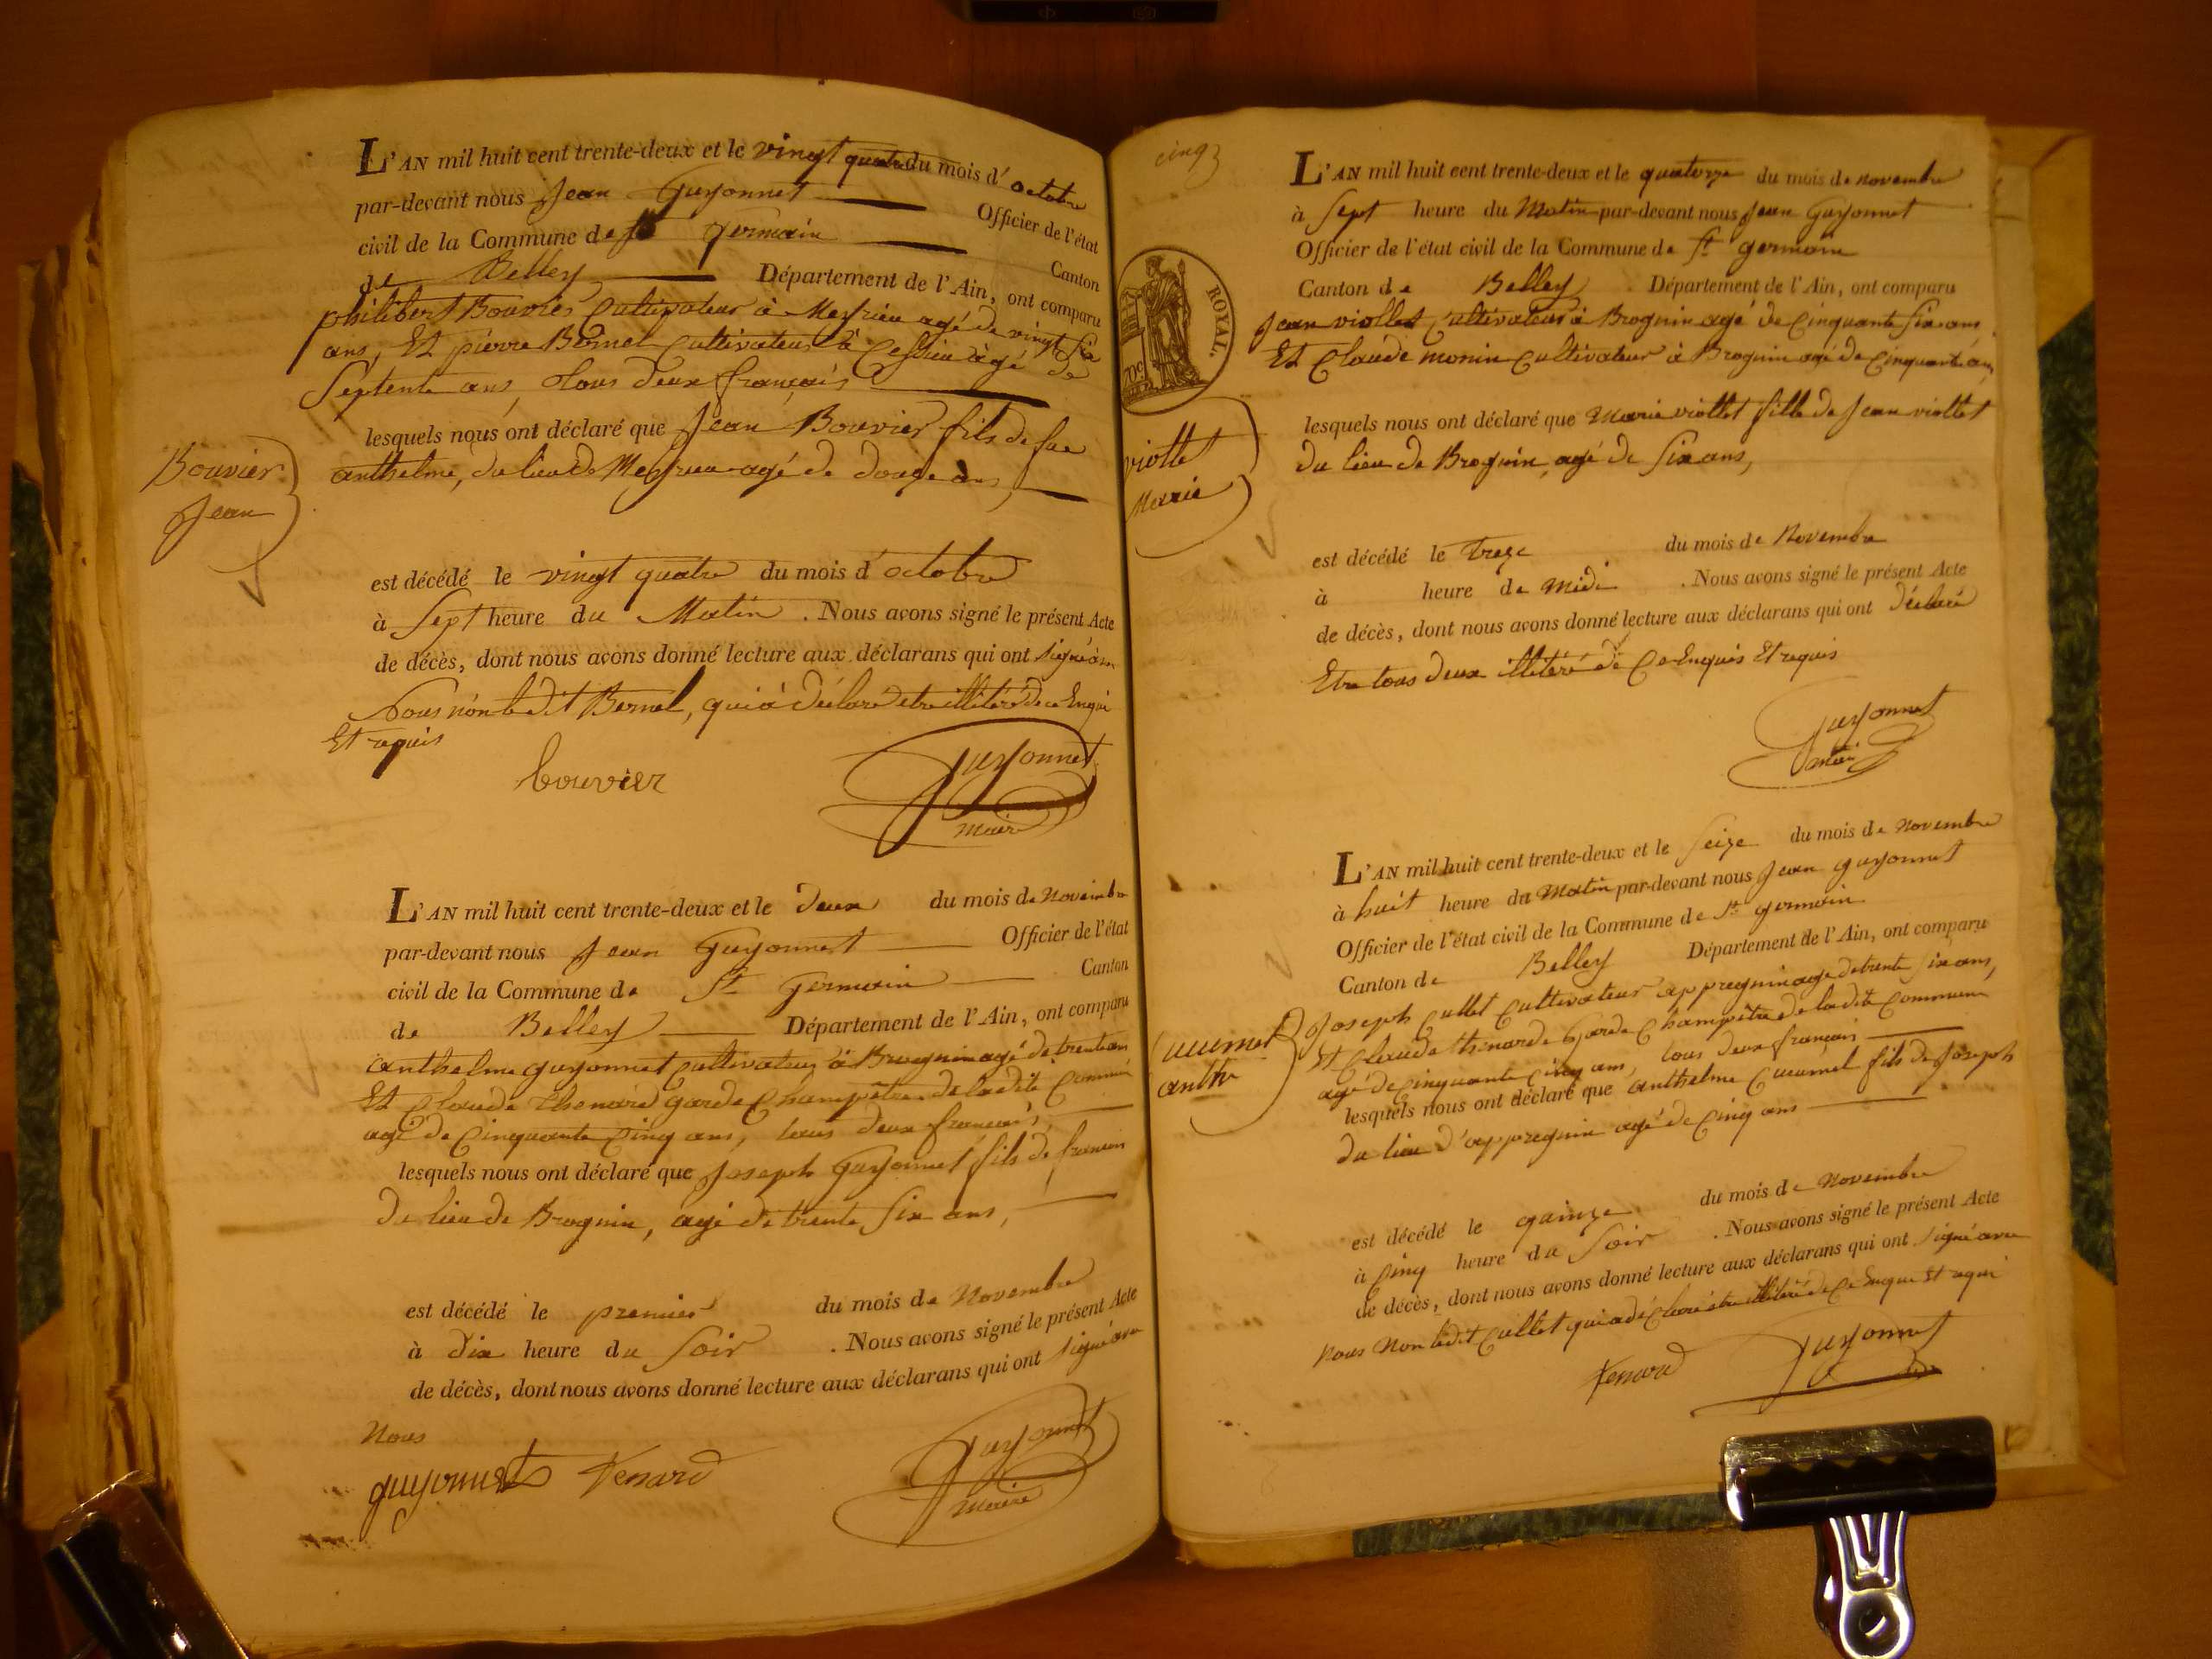 L'AN mil huit cent trente-deux et le vingt quatre du mois d'octobre
par-devant nous Jean Guyonnet Officier de l'état
civil de la Commune de St germain Canton
de Belley Département de l'Ain, ont comparu
philibert Bouvier Cultivateur à Meyrieu agé de vingt six
ans, Et pierre Bornel Cultivateur à Cessieu àgé de
Septente ans, tous deux français
lesquels nous ont déclaré que Jean Bouvier fils de feu
anthelme, du lieu de Meyrieu agé de douze ans,
Bouvier
Jean
est décédé le vingt quatre du mois d'octobre
à Sept heure du Matin . Nous avons signé le présent Acte
de décès, dont nous avons donné lecture aux déclarans qui ont signé avec
Nous non ledit Bernel, qui à déclaré etre illitéré de ce Enqui
Et requis
bouvier
Guyonnet
maire
L'AN mil huit cent trente-deux et le deux du mois de Novembre
par-devant nous Jean Guyonnet Officier de l'état
civil de la Commune de St Germain Canton
de Belley Département de l'Ain, ont comparu
anthelme guyonnet Cultivateur à Brognin agé de trente ans
Et Claude thenard garde Champêtre de ladite Commune
agé de Cinquante Cinq ans, tous deux francais,
lesquels nous ont déclaré que Joseph Guyonnet fils de francois
De lieu de Brognin, agé de trente Six ans,
est décédé le premier du mois de Novembre
à dix heure du Soir . Nous avons signé le présent Acte
de décès, dont nous avons donné lecture aux déclarans qui ont signé avec
Nous
guyonnet tenard
Guyonnet
maire
cinq
L'AN mil huit cent trente-deux et le quatorze du mois de novembre
à Sept heure du Matin par-devant nous Jean Guyonnet
Officier de l'état civil de la Commune de St germain
Canton de Belley . Département de l'Ain, ont comparu
ROYAL.
Jean viollet Cultivateur à Brognin agé de Cinquante Six ans
Et Claude monin Cultivateur à Brognin agé de Cinquante ans
lesquels nous ont déclaré que Marie viollet fille de Jean viollet
du lieu de Brognin, agé de Six ans,
viollet
Marie
est décédé le treze du mois de Novembre
à heure de Midi . Nous avons signé le présent Acte
de décès, dont nous avons donné lecture aux déclarans qui ont déclaré
Etre tous deux illitéré de Ce Enquis Et requis
Guyonnet
maire
L'AN mil huit cent trente-deux et le Seize du mois de Novembre
à huit heure du Matin par-devant nous Jean guyonnet
Officier de l'état civil de la Commune de St germain
Canton de Belley Département de l'Ain, ont comparu
Joseph Cullet Cultivateur appregnin agé de trente Six ans,
Et Claude thenard Garde Champêtre de ladite Commune
agé de Cinquante Cinq ans, tous deux français
lesquels nous ont déclaré que anthelme Cucumel fils de Joseph
du lieu d'appregnin agé de Cinq ans
Cucumel
anthe
est décédé le quinze du mois de Novembre
à Cinq heure du Soir . Nous avons signé le présent Acte
de décès, dont nous avons donné lecture aux déclarans qui ont signé avec
Nous Non ledit Cullet qui a déclaré être illitéré de Ce Enquis Et requi
tenard
Guyonnet